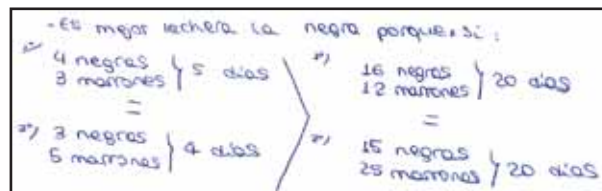 - Es mejor lechera la negra porque, si:
1º) 4 negras
3 marrones } 5 días
=
2º) 3 negras
5 marrones } 4 días
1º) 16 negras
12 marrones } 20 días
=
2º) 15 negras
25 marrones } 20 días